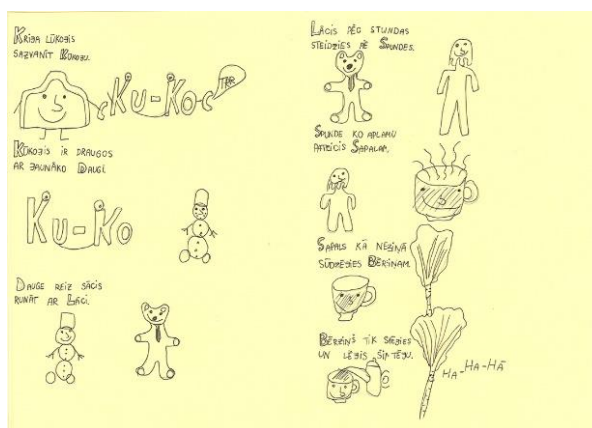 KRIŽA LŪKOJIS
SAZVANĪT KOKOJU.
KU-KO-C
TRR
KŪKOJIS IR DRAUGOS
AR JAUNĀKO DAUGI.
KU-KO
DAUGE REIZ SĀCIS
RUNĀT AR LĀCI.
LĀCIS PĒC STUNDAS
STEIDZIES PĒ SPUNDES.
SPUNDE KO APLAMU
ATZĪCIS SAPALAM.
SAPALS KĀ NĒŽIŅĀ
SŪDZĒJIES BĒRZIŅAM.
BĒRZIŅŠ TIK
UN LĒJIS TĒJU.
HA-HA-HĀ